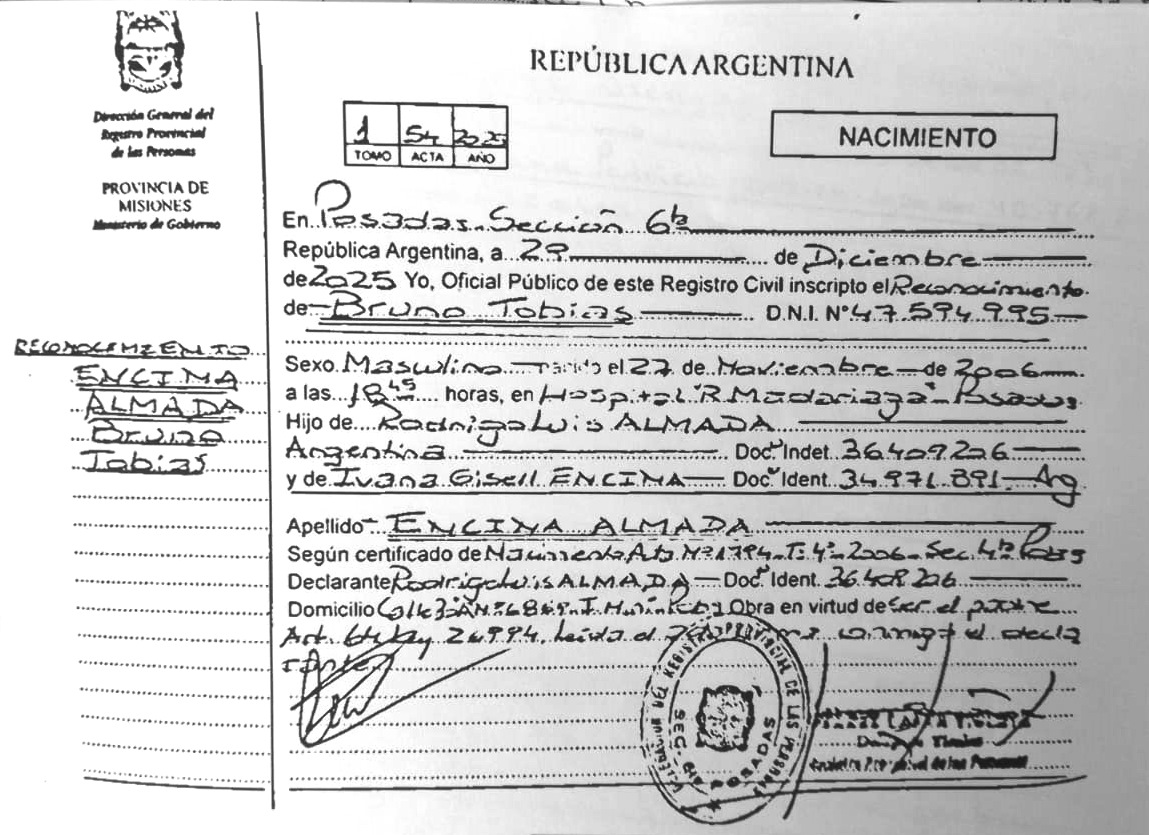 REPÚBLICA ARGENTINA
Dirección General del
Registro Provincial
de las Personas
PROVINCIA DE
MISIONES
Ministerio de Gobierno
1 54 2025
TOMO ACTA AÑO
NACIMIENTO
En Posadas Sección 6ta
República Argentina, a 29 de Diciembre
de 2025 Yo, Oficial Público de este Registro Civil inscripto el Reconocimiento
de Bruno Tobias D.N.I. N° 47.594.995
RECONOCIMIENTO
ENCINA
ALMADA
Bruno
Tobias
Sexo Masculino nacido el 27 de Noviembre de 2006
a las 18 45 horas, en Hospital "R Madariaga" Posadas
Hijo de Rodrigo Luis ALMADA
Argentina Doc. Indet. 36.409.226
y de Ivana Gisell ENCINA Doc. Ident. 34.971.891 Arg
Apellido ENCINA ALMADA
Según certificado de Nacimiento Acta N° 1794 T: 4° 2006 Sec. 4ta Pdas
Declarante Rodrigo Luis ALMADA Doc. Ident.
Domicilio Obra en virtud de ser el padre
Art. Ley 26994. Leída el conmigo el decla
rante
SEC. 6ta POSADAS